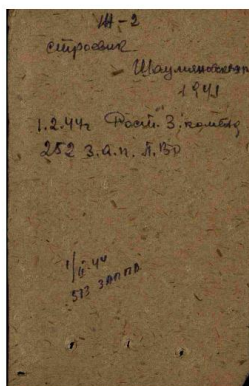 Ш-2
строевик
Шаумяновский
1941
1.2.44г Рост. З. комвзв
252 З.а.п. Л.ВО
1/II-44
513 ЗАППВ